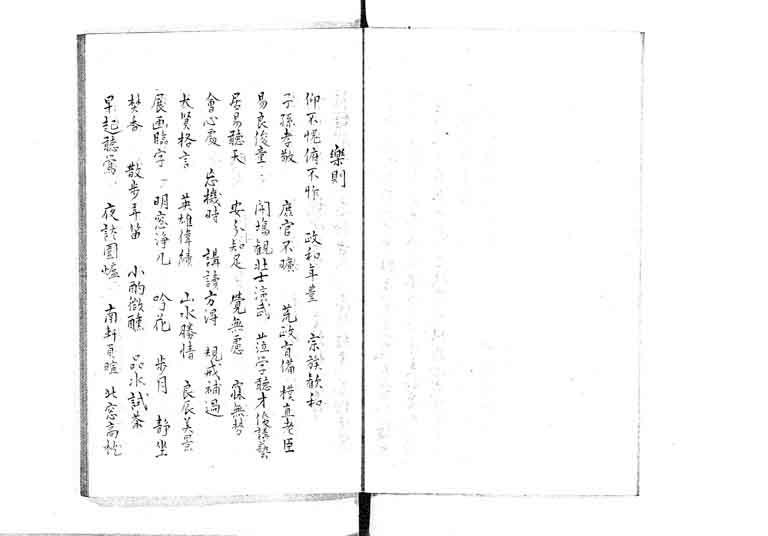 樂則
仰不愧俯不怍 政和年豊 宗族歓和
子孫孝敬 庶官不曠 荒政有備 樸直老臣
易良俊童 開場観壮士演武 莅学聴才俊講藝
居易聽天 安分知足 覺無慮 寐無梦
會心處 忘機時 講読方淂 規戒補過
大賢格言 英雄偉績 山水勝情 良辰美景
展画臨字 明窓浄几 吟花 步月 静坐
焚香 散步弄笛 小酌微醺 品水試茶
早起聽鶯 夜談囲爐 南軒負暄 北窓高枕